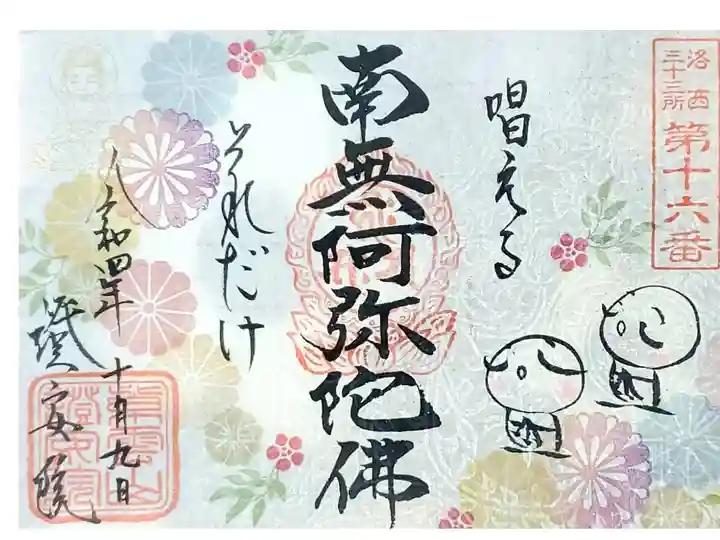 洛西
三十三所
第十六番
唱える
南無阿弥陀佛
それだけ
令和四年十月九日
證安院